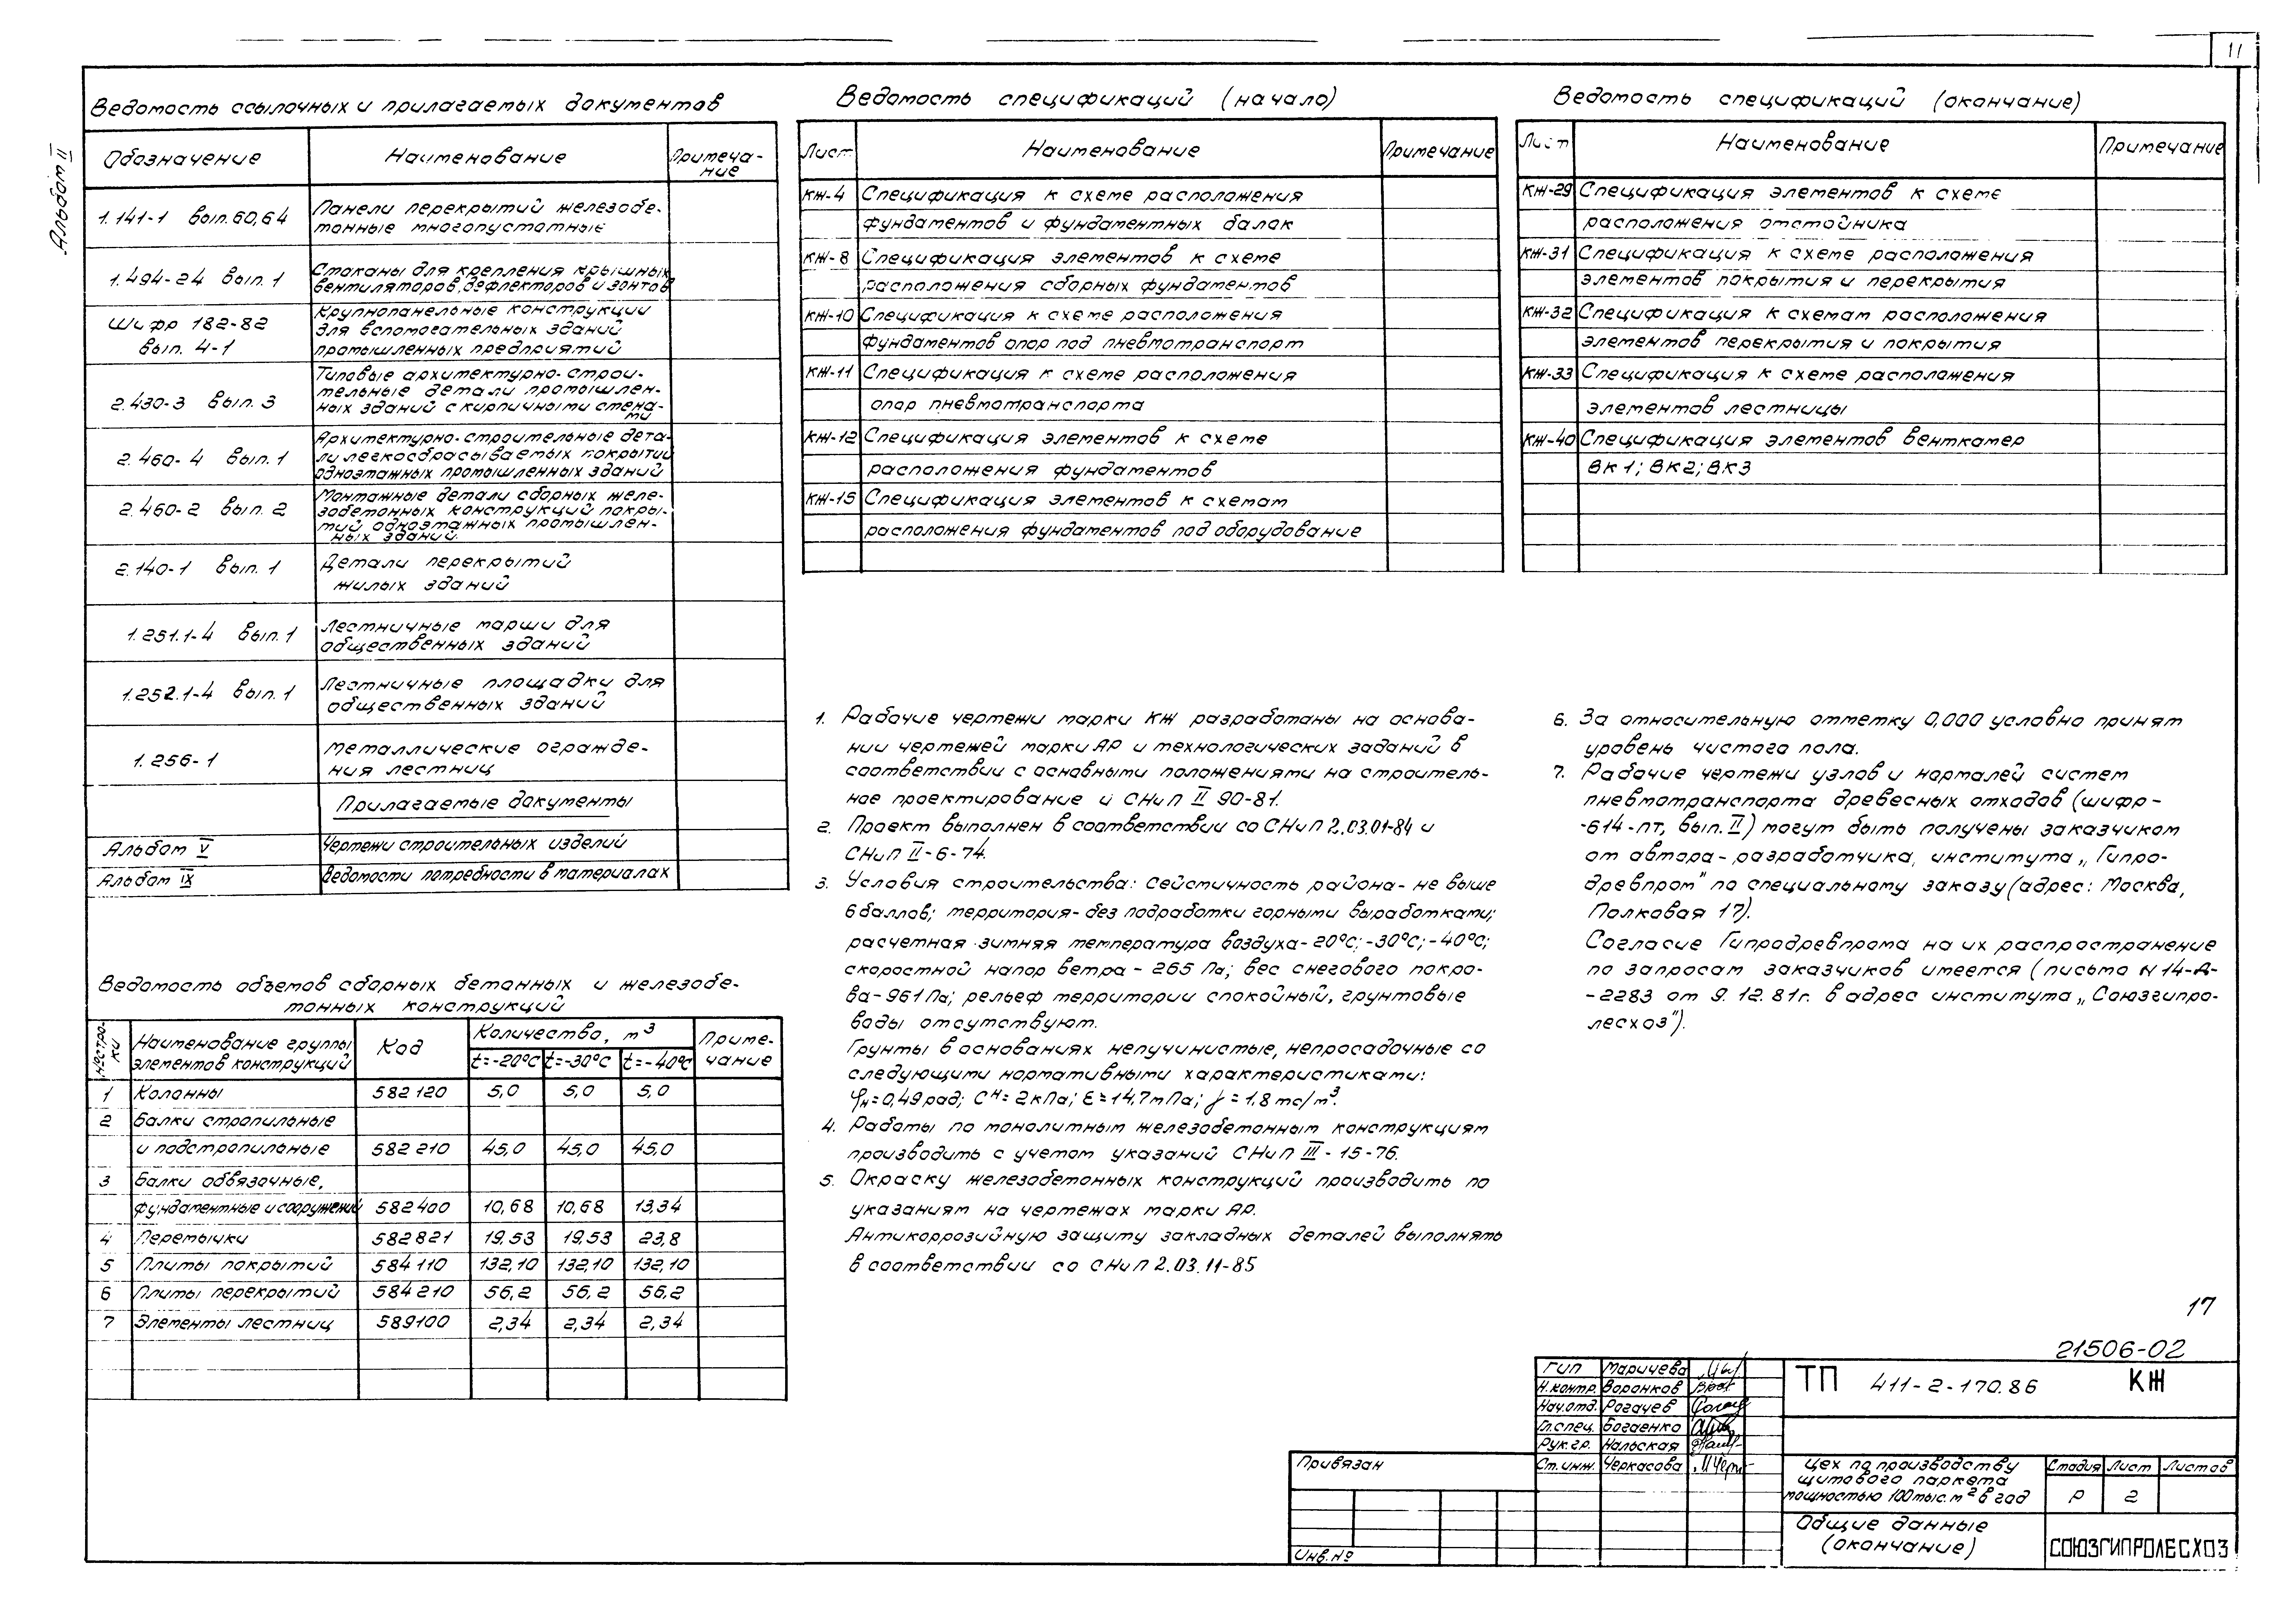 11
Альбом II
Ведомость ссылочных и прилагаемых документов
Обозначение Наименование Примеча-
ние
1.141-1 вып. 60,64 Панели перекрытий железобе-
тонные многопустотные
1.494-24 вып. 1 Стаканы для крепления крышных
вентиляторов, дефлекторов и зонтов
Шифр 182-82
вып. 4-1
Крупнопанельные конструкции
для вспомогательных зданий
промышленных предприятий
2.430-3 вып. 3
Типовые архитектурно-строи-
тельные детали промышлен-
ных зданий с кирпичными стена-
ми
2.460-4 вып. 1
Архитектурно-строительные дета-
ли легкосбрасываемых покрытий
одноэтажных промышленных зданий
2.460-2 вып. 2
Монтажные детали сборных желе-
зобетонных конструкций покры-
тий одноэтажных промышлен-
ных зданий.
2.140-1 вып. 1 Детали перекрытий
жилых зданий
1.251.1-4 вып. 1 Лестничные марши для
общественных зданий
1.252.1-4 вып. 1 Лестничные площадки для
общественных зданий
1.256-1 Металлические огражде-
ния лестниц
Прилагаемые документы
Альбом V Чертежи строительных изделий
Альбом IX Ведомости потребности в материалах
Ведомость объемов сборных бетонных и железобе-
тонных конструкций
№ стро-
ки
Наименование группы
элементов конструкций
Код
Количество, м3
t=-20°C t=-30°C t=-40°C
Приме-
чание
1 Колонны 582120 5,0 5,0 5,0
2 Балки стропильные
и подстропильные 582210 45,0 45,0 45,0
3 Балки обвязочные,
фундаментные и сооружений 582400 10,68 10,68 13,34
4 Перемычки 582821 19,53 19.53 23,8
5 Плиты покрытий 584110 132,10 132,10 132,10
6 Плиты перекрытий 584210 56,2 56,2 56,2
7 Элементы лестниц 589100 2,34 2,34 2,34
Ведомость спецификаций (начало)
Лист Наименование Примечание
КЖ-4 Спецификация к схеме расположения
фундаментов и фундаментных балок
КЖ-8 Спецификация элементов к схеме
расположения сборных фундаментов
КЖ-10 Спецификация к схеме расположения
фундаментов опор под пневмотранспорт
КЖ-11 Спецификация к схеме расположения
опор пневмотранспорта
КЖ-12 Спецификация элементов к схеме
расположения фундаментов
КЖ-15 Спецификация элементов к схемам
расположения фундаментов под оборудование
Ведомость спецификаций (окончание)
Лист Наименование Примечание
КЖ-29 Спецификация элементов к схеме
расположения отстойника
КЖ-31 Спецификация к схеме расположения
элементов покрытия и перекрытия
КЖ-32 Спецификация к схемам расположения
элементов перекрытия и покрытия
КЖ-33 Спецификация к схеме расположения
элементов лестницы
КЖ-40 Спецификация элементов венткамер
ВК1; ВК2; ВК3
1. Рабочие чертежи марки КЖ разработаны на основа-
нии чертежей марки АР и технологических заданий в
соответствии с основными положениями на строитель-
ное проектирование и СНиП II 90-81.
2. Проект выполнен в соответствии со СНиП 2.03.01-84 и
СНиП II-6-74.
3. Условия строительства: сейсмичность района - не выше
6 баллов; территория - без подработки горными выработками;
расчетная зимняя температура воздуха -20°С; -30°С; -40°С;
скоростной напор ветра - 265 Па; вес снегового покро-
ва - 961 Па; рельеф территории спокойный, грунтовые
воды отсутствуют.
Грунты в основаниях непучинистые, непросадочные со
следующими нормативными характеристиками:
φн=0,49 рад; Сн=2 кПа; Е=14,7 мПа; γ=1,8 тс/м3.
4. Работы по монолитным железобетонным конструкциям
производить с учетом указаний СНиП III-15-76.
5. Окраску железобетонных конструкций производить по
указаниям на чертежах марки АР.
Антикоррозийную защиту закладных деталей выполнять
в соответствии со СНиП 2.03.11-85
6. За относительную отметку 0,000 условно принят
уровень чистого пола.
7. Рабочие чертежи узлов и нормалей систем
пневмотранспорта древесных отходов (шифр-
-614-пт, вып. II) могут быть получены заказчиком
от автора-разработчика, института „Гипро-
древпром" по специальному заказу (адрес: Москва,
Полковая 17).
Согласие Гипродревпрома на их распространение
по запросам заказчиков имеется (письмо N 14-А-
-2283 от 9.12.81г. в адрес института „Союзгипро-
лесхоз").
17
21506-02
ГИП Маричева
Н.контр. Воронков
Нач.отд. Рогачев
Гл.спец. Богаенко
Рук.гр. Нальская
Ст.инж. Черкасова
ТП 411-2-170.86 КЖ
Привязан
Инв.№
Цех по производству
щитового паркета
мощностью 100 тыс. м2 в год
Стадия Лист Листов
Р 2
Общие данные
(окончание)
СОЮЗГИПРОЛЕСХОЗ